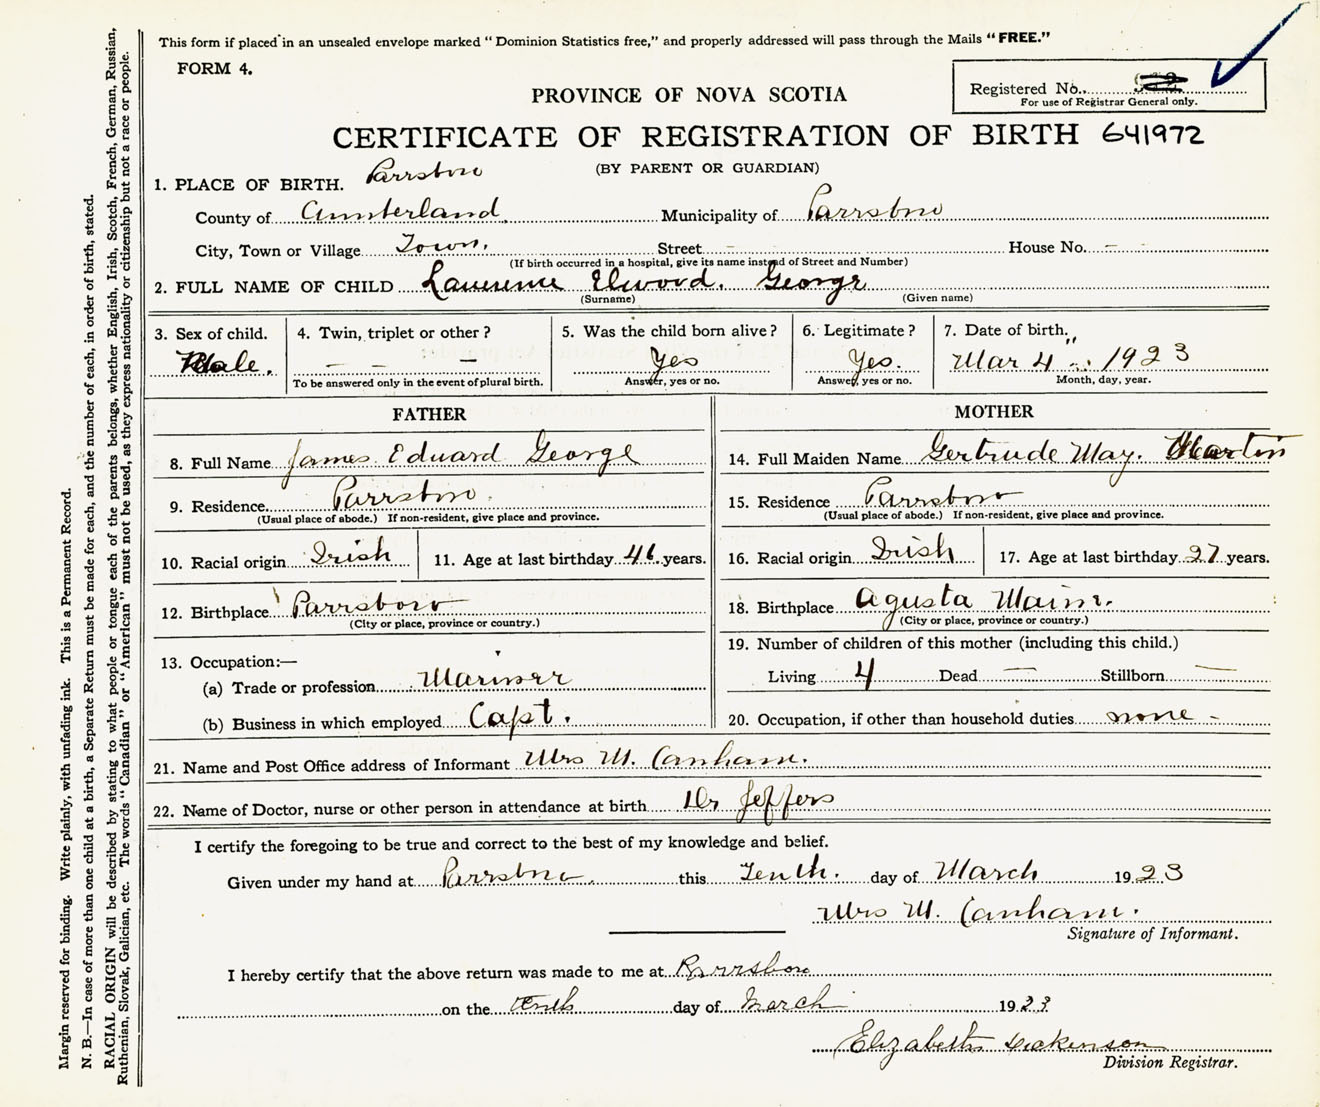 This form if placed in an unsealed envelope marked "Dominion Statistics free," and properly addressed will pass through the Mails "FREE."
FORM 4.
Registered No.
For use of Registrar General only.
PROVINCE OF NOVA SCOTIA
CERTIFICATE OF REGISTRATION OF BIRTH 641972
(BY PARENT OR GUARDIAN)
1. PLACE OF BIRTH. Parrsboro
County of Cumberland Municipality of Parrsboro
City, Town or Village Town. Street – House No. –
(If birth occurred in a hospital, give its name instead of Street and Number)
2. FULL NAME OF CHILD Lawrence Elwood. George
(Surname) (Given name)
3. Sex of child. 4. Twin, triplet or other? 5. Was the child born alive? 6. Legitimate? 7. Date of birth.
Male. – – – Yes Yes. Mar 4" 1923
To be answered only in the event of plural birth. Answer, yes or no. Answer, yes or no. Month, day, year.
FATHER MOTHER
8. Full Name James Edward George 14. Full Maiden Name Gertrude May. Martin
9. Residence Parrsboro. 15. Residence Parrsboro
(Usual place of abode.) If non-resident, give place and province. (Usual place of abode.) If non-resident, give place and province.
10. Racial origin Irish 11. Age at last birthday 46 years. 16. Racial origin Irish 17. Age at last birthday 27 years.
12. Birthplace Parrsboro 18. Birthplace Agusta Maine.
(City or place, province or country.) (City or place, province or country.)
13. Occupation:— 19. Number of children of this mother (including this child.)
(a) Trade or profession Mariner Living 4 Dead — Stillborn —
(b) Business in which employed Capt. 20. Occupation, if other than household duties none -
21. Name and Post Office address of Informant Mrs M. Canham.
22. Name of Doctor, nurse or other person in attendance at birth Dr Jeffers
I certify the foregoing to be true and correct to the best of my knowledge and belief.
Given under my hand at Parrsboro. this Tenth. day of March 1923
Mrs M. Canham.
Signature of Informant.
I hereby certify that the above return was made to me at Parrsboro
on the tenth day of March 1923
Elizabeth Dickinson
Division Registrar.
Margin reserved for binding. Write plainly, with unfading ink. This is a Permanent Record.
N. B.—In case of more than one child at a birth, a Separate Return must be made for each, and the number of each, in order of birth, stated.
RACIAL ORIGIN will be described by stating to what people or tongue each of the parents belongs, whether English, Irish, Scotch, French, German, Russian,
Ruthenian, Slovak, Galician, etc. The words "Canadian" or "American" must not be used, as they express nationality or citizenship but not a race or people.